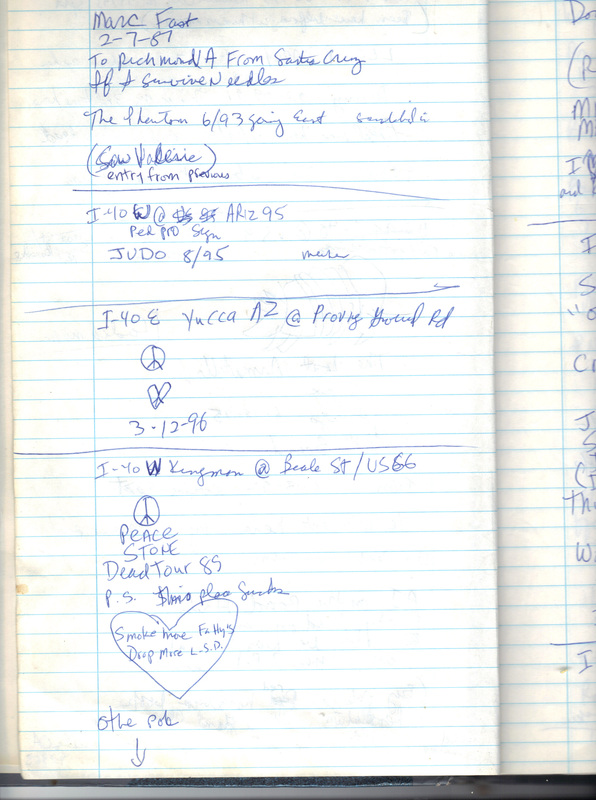 Marc Fast
2-7-87
To Richmond VA From Santa Cruz
If I survive Needles
The Phantom 6/93 going East
(Saw Valerie)
entry from previous
I-40 W @ ARIZ 95
Ped pro Sign
JUDO 8/95
I-40 E Yucca AZ @ Proving Ground Rd
3-12-96
I-40 W Kingman @ Beale St/US66
PEACE
STONE
Dead Tour 89
P.S. this place sucks
Smoke more Fatty's
Drop More L.S.D.
Othe pole
Do
(R
M
M
I M
and
I
S
"o
Cr
J
S
(I
Th
W
I